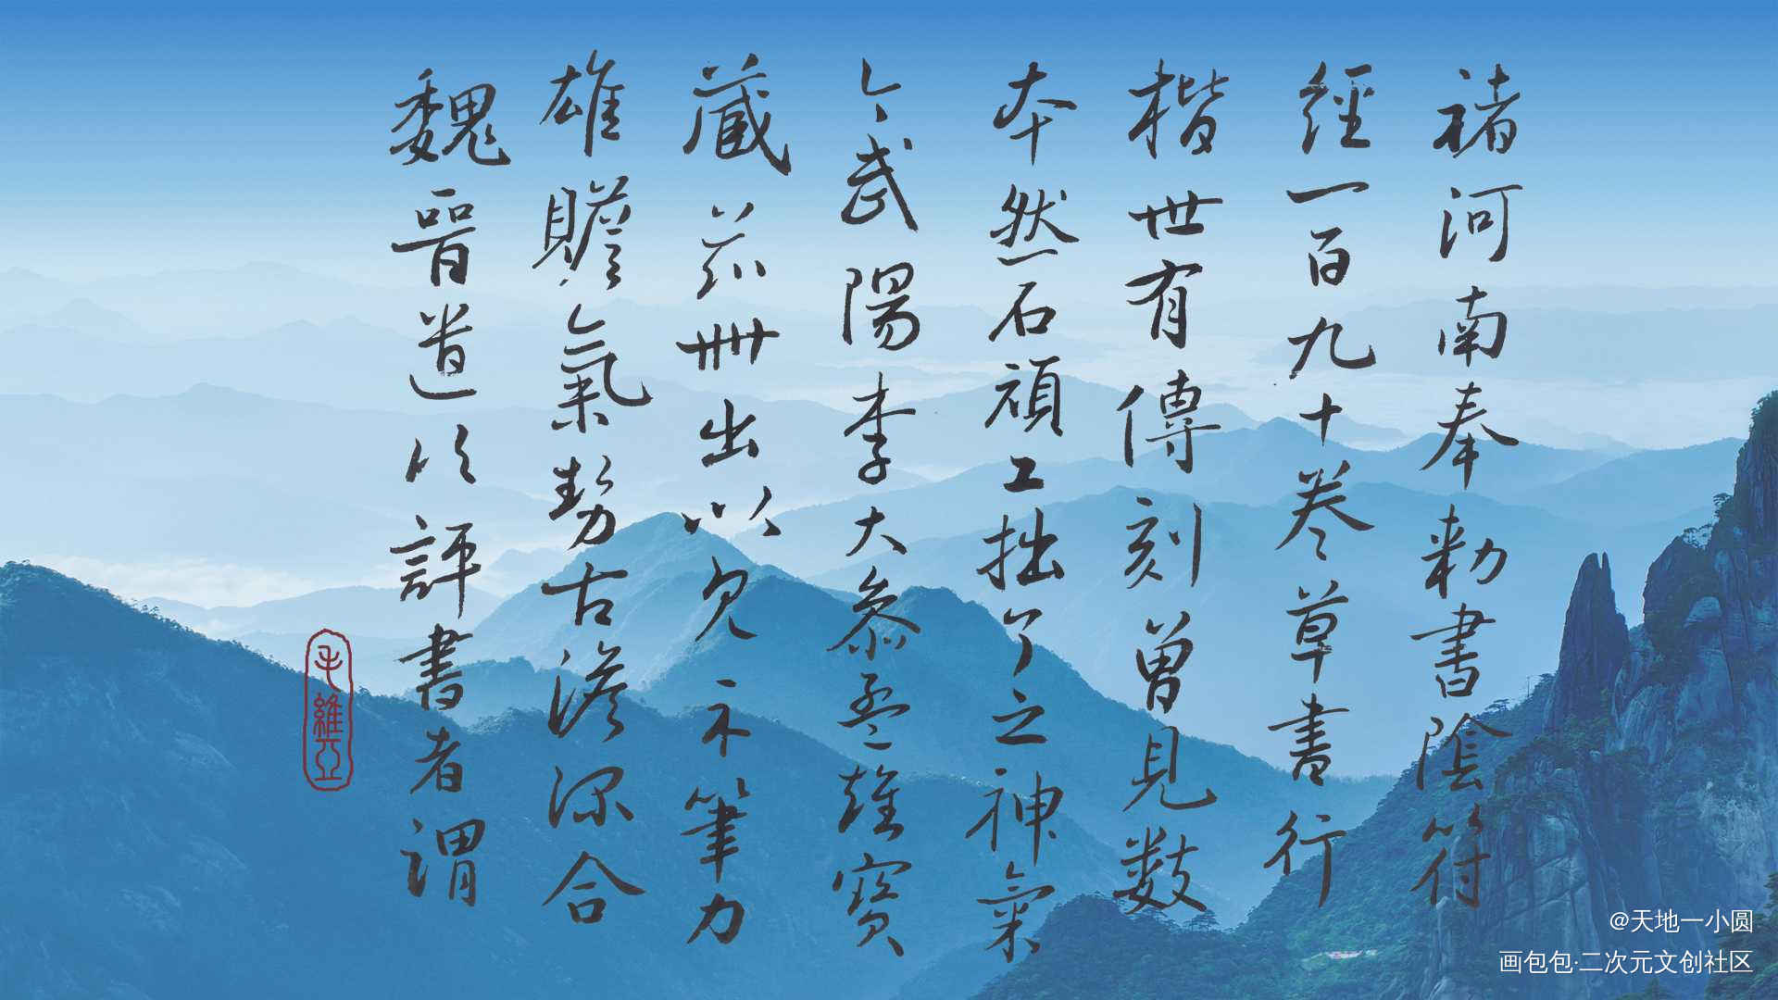 褚河南奉勅書陰符
經一百九十卷草書行
楷世有傳刻曾見數
本然石頑工拙了之神氣
今武陽李大叅孟雄寶
藏茲冊出以見示筆力
雄贍氣勢古澹深合
魏晉遺以評書者謂
毛維亞
@天地一小圆
画包包·二次元文创社区